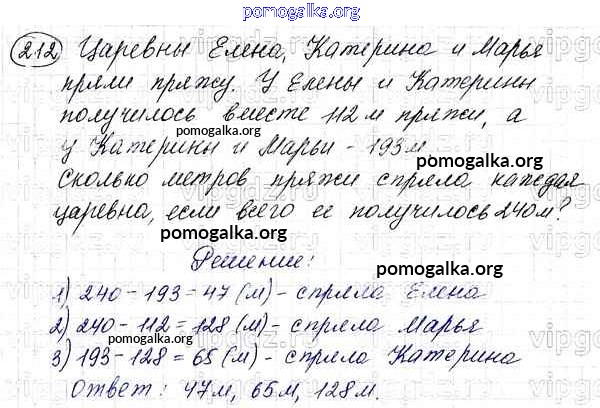 pomogalka.org
212 Царевны Елена, Катерина и Марья
пряли пряжу. У Елены и Катерины
получилось вместе 112 м пряжи, а
pomogalka.org
у Катерины и Марьи - 193 м
pomogalka.org
Сколько метров пряжи спряла каждая
царевна, если всего ее получилось 240 м?
pomogalka.org
Решение:
pomogalka.org
1) 240 - 193 = 47 (м) - спряла Елена
2) 240 - 112 = 128 (м) - спряла Марья
3) 193 - 128 = 65 (м) - спряла Катерина
pomogalka.org
Ответ: 47 м, 65 м, 128 м.